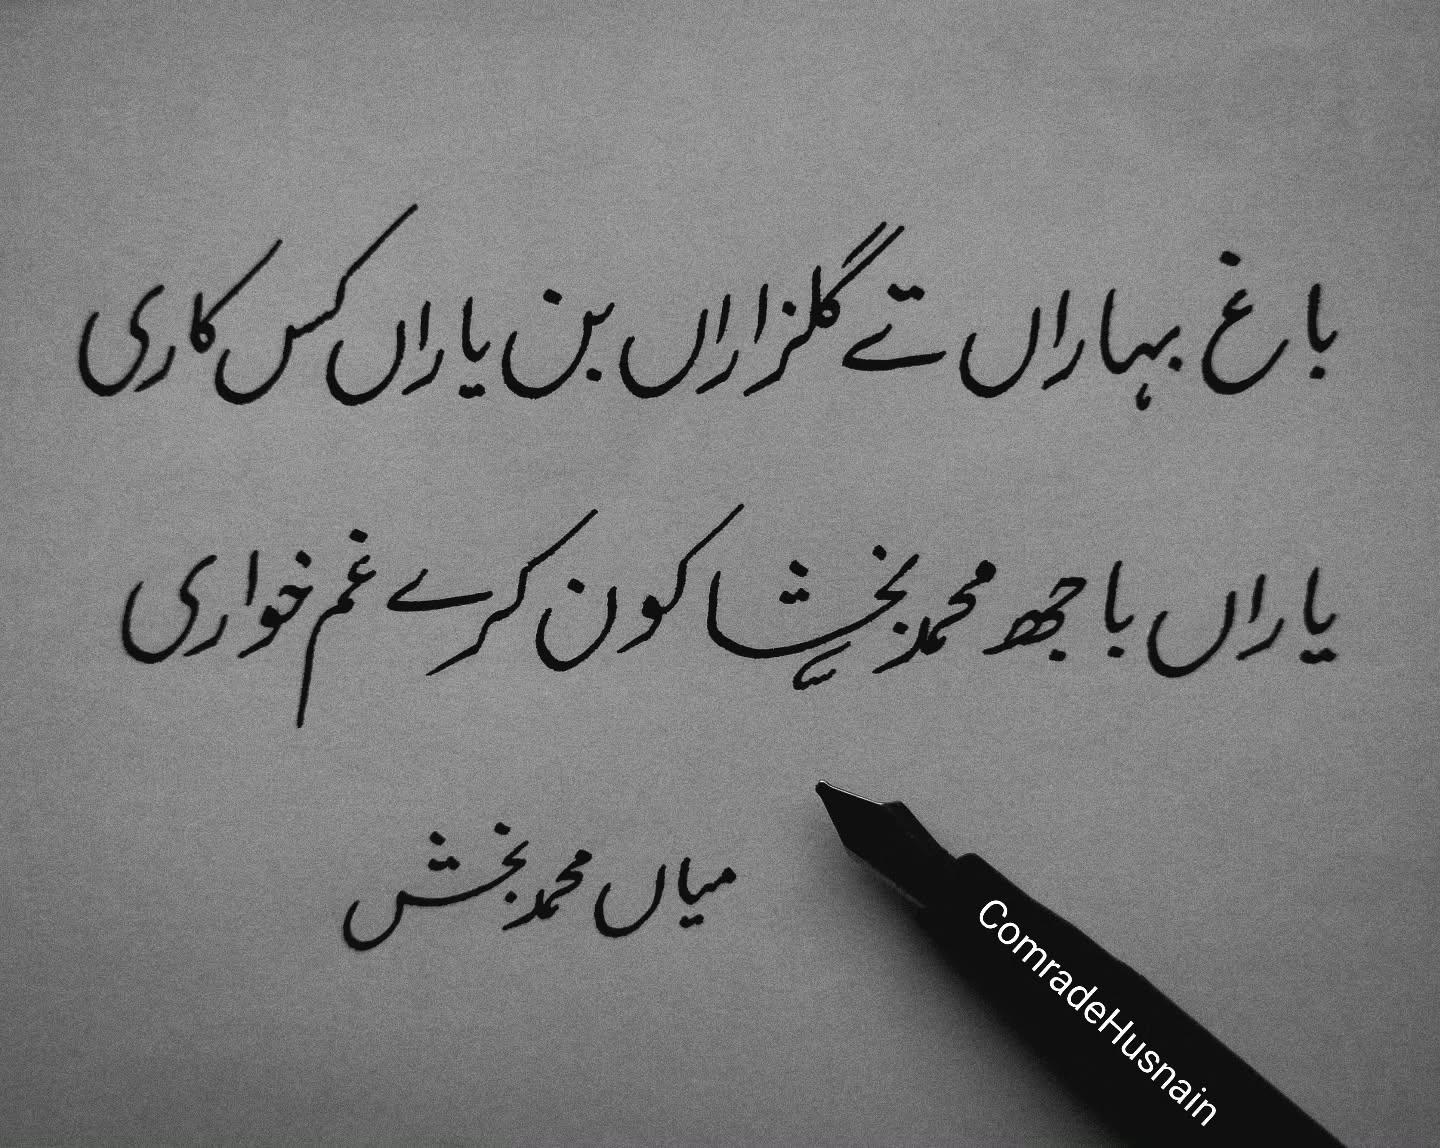 باغ بہاراں تے گلزاراں بن یاراں کس کاری
یاراں باجھ محمد بخشا کون کرے غم خواری
میاں محمد بخش
ComradeHusnain